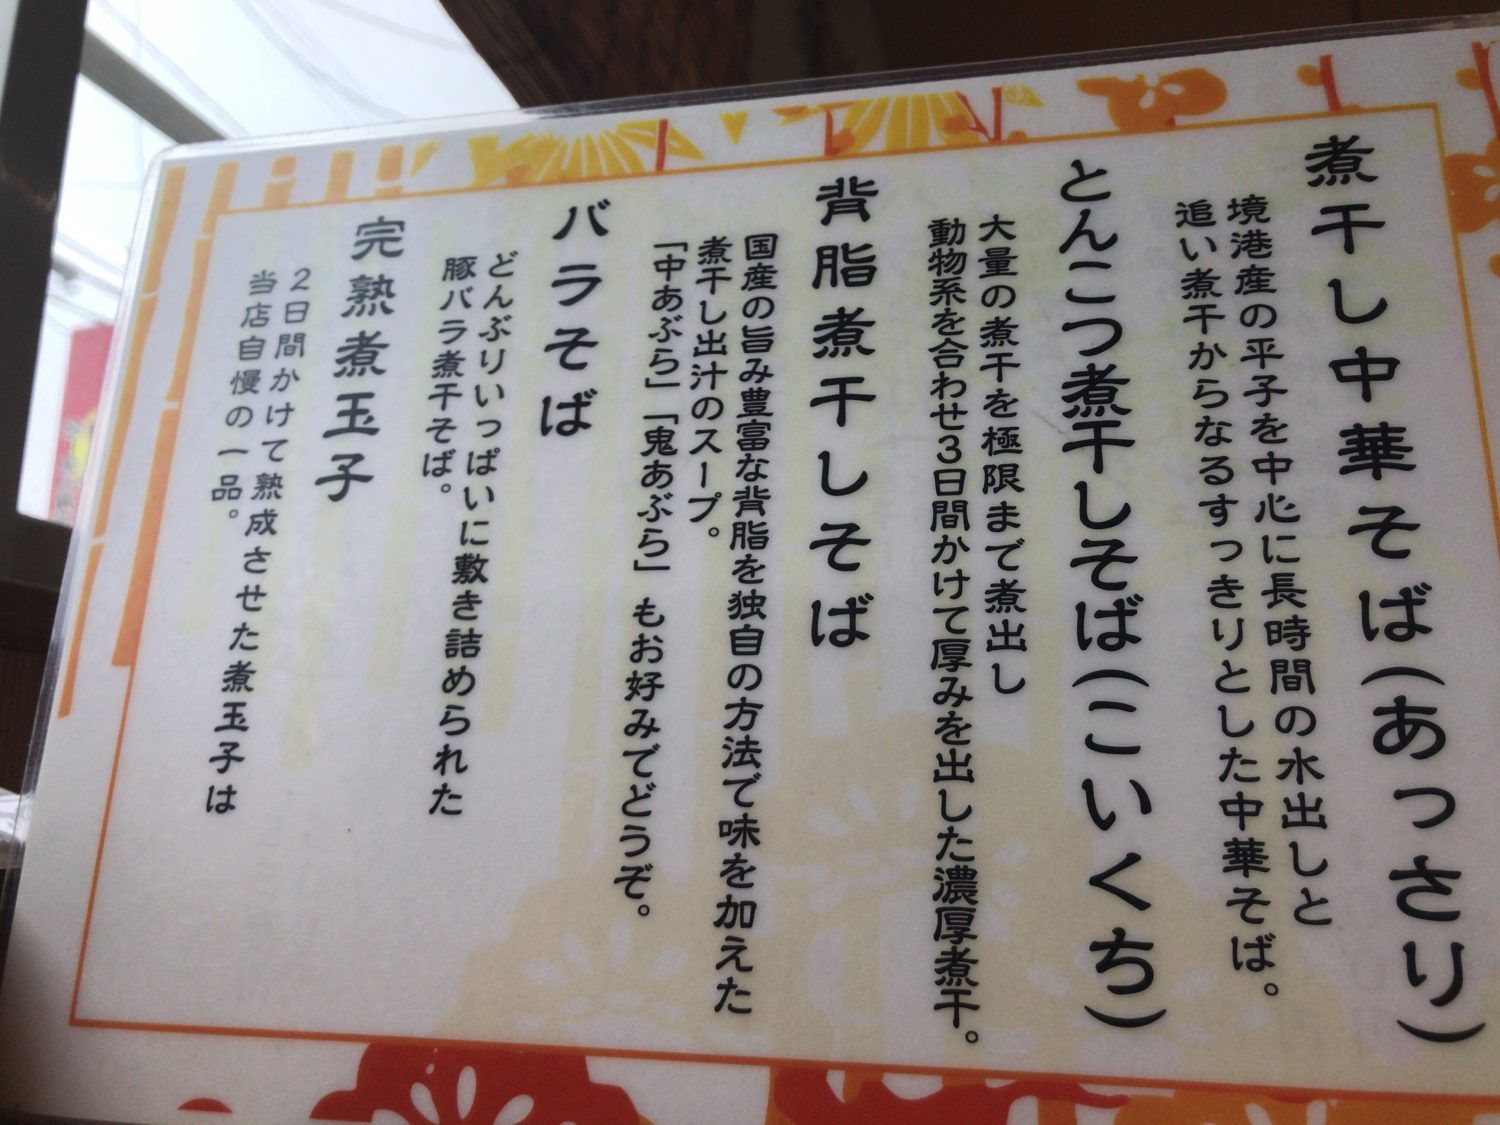 煮干し中華そば(あっさり)
境港産の平子を中心に長時間の水出しと
追い煮干からなるすっきりとした中華そば。
とんこつ煮干しそば(こいくち)
大量の煮干を極限まで煮出し
動物系を合わせ3日間かけて厚みを出した濃厚煮干。
背脂煮干しそば
国産の旨み豊富な背脂を独自の方法で味を加えた
煮干し出汁のスープ。
「中あぶら」「鬼あぶら」もお好みでどうぞ。
バラそば
どんぶりいっぱいに敷き詰められた
豚バラ煮干そば。
完熟煮玉子
2日間かけて熟成させた煮玉子は
当店自慢の一品。